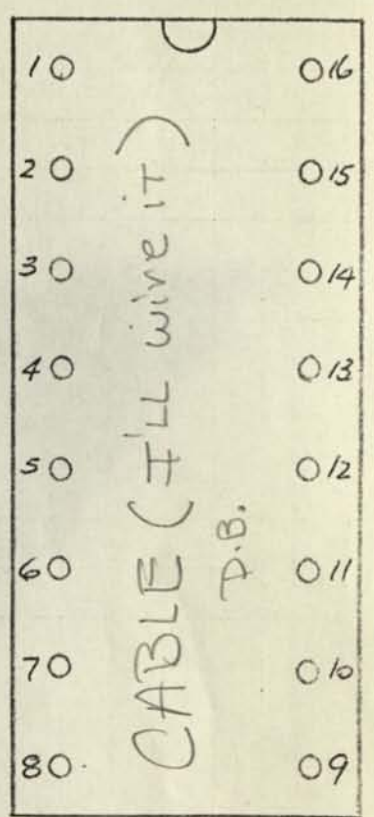 1 16
2 15
3 14
4 13
5 12
6 11
7 10
8 9
CABLE (I'LL wire iT)
D.B.